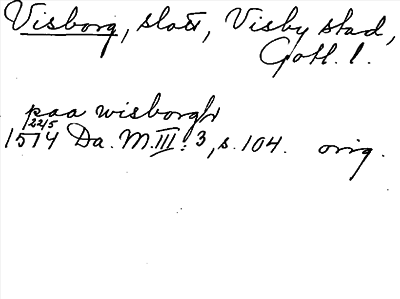 Visborg, slott, Visby stad,
Gotl. l.
paa wisborgh
22/5
1514 Da. M. III: 3, s. 104. orig.